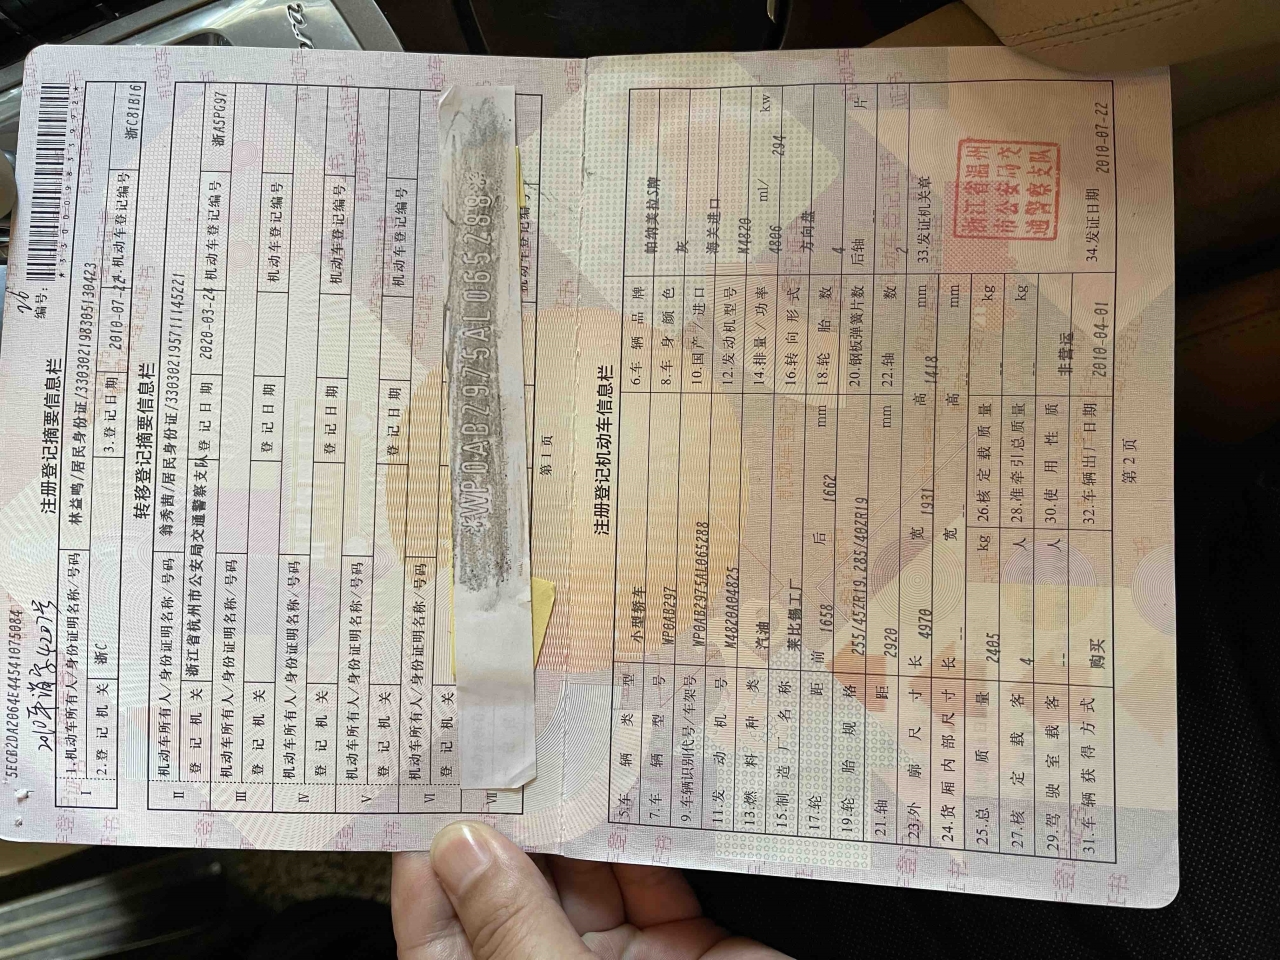 5ECB2DA2064E44541075084
编号:
2010年消字4207号
注册登记摘要信息栏
Ⅰ 1.机动车所有人/身份证明名称/号码 林益鸣/居民身份证/330302198305130423
2.登记机关 浙C 3.登记日期 2010-07-22 4.机动车登记编号 浙C81B16
转移登记摘要信息栏
Ⅱ 机动车所有人/身份证明名称/号码 翁秀茜/居民身份证/330302195711145221
登记机关 浙江省杭州市公安局交通警察支队 登记日期 2020-03-24 机动车登记编号 浙A5PG97
Ⅲ 机动车所有人/身份证明名称/号码
登记机关 登记日期 机动车登记编号
Ⅳ 机动车所有人/身份证明名称/号码
登记机关 登记日期 机动车登记编号
Ⅴ 机动车所有人/身份证明名称/号码
登记机关 登记日期 机动车登记编号
Ⅵ 机动车所有人/身份证明名称/号码
登记机关
Ⅶ
*WP0AB2975AL065288*
第1页
注册登记机动车信息栏
5.车辆类型 小型轿车 6.车辆品牌 帕纳美拉S牌
7.车辆型号 WP0AB297 8.车身颜色 灰
9.车辆识别代号/车架号 WP0AB2975AL065288 10.国产/进口 海关进口
11.发动机号 M4820A04825 12.发动机型号 M4820
13.燃料种类 汽油 14.排量/功率 4806 ml/ 294 kw
15.制造厂名称 莱比锡工厂 16.转向形式 方向盘
17.轮距 前 1658 后 1662 mm 18.轮胎数 4
19.轮胎规格 255/45ZR19,285/40ZR19 20.钢板弹簧片数 后轴 -- 片
21.轴距 2920 mm 22.轴数 2
23.外廓尺寸 长 4970 宽 1931 高 1418 mm 33.发证机关章
24.货厢内部尺寸 长 -- 宽 -- 高 -- mm
25.总质量 2405 kg 26.核定载质量 -- kg
27.核定载客 4 人 28.准牵引总质量 -- kg
29.驾驶室载客 -- 人 30.使用性质 非营运
31.车辆获得方式 购买 32.车辆出厂日期 2010-04-01 34.发证日期 2010-07-22
浙江省温州
市公安局交
通警察支队
第2页